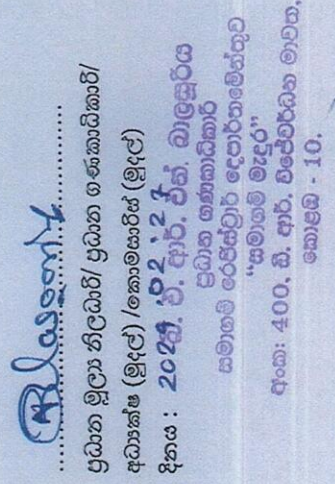 ප්‍රධාන මූල්‍ය නිලධාරි/ ප්‍රධාන ගණකාධිකාරි/
අධ්‍යක්ෂ (මුදල්) /කොමසාරිස් (මුදල්)
දිනය : 2024.02.27
ඒ. ආර්. එන්. බාලසූරිය
ප්‍රධාන ගණකාධිකාරි
සමාගම් රෙජිස්ට්‍රාර් දෙපාර්තමේන්තුව
"සමාගම් මැදුර"
අංක: 400, ඩී. ආර්. විජේවර්ධන මාවත,
කොළඹ - 10.